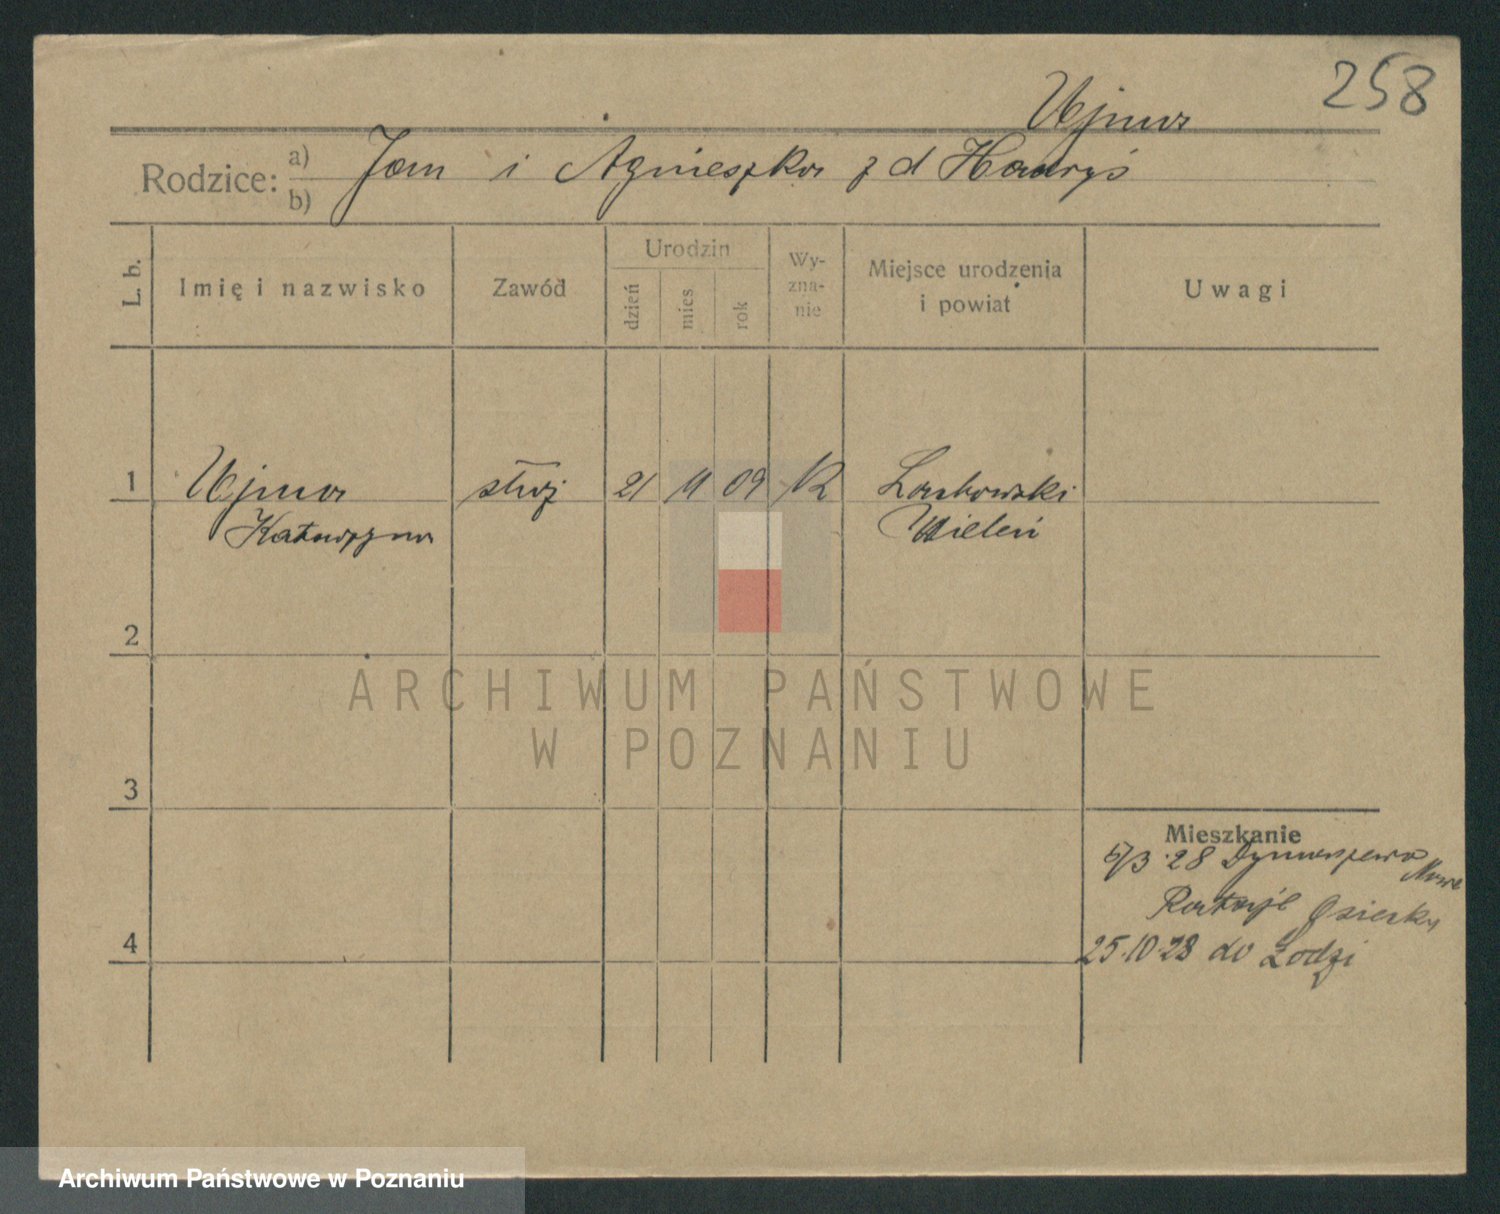 258
Ujma
Rodzice: a) Jan i Agnieszka z d Hadryś
b)
L. b. Imię i nazwisko Zawód Urodzin dzień mies rok Wy-zna-nie Miejsce urodzenia i powiat Uwagi
1 Ujma służ 21 11 09 R
Katarzyna Wieleń
2
ARCHIWUM PAŃSTWOWE
W POZNANIU
3
Mieszkanie
5/3 28 Dymaszewo Nowe
Rataje Osieka
4
25.10.28 do Łodzi
Archiwum Państwowe w Poznaniu